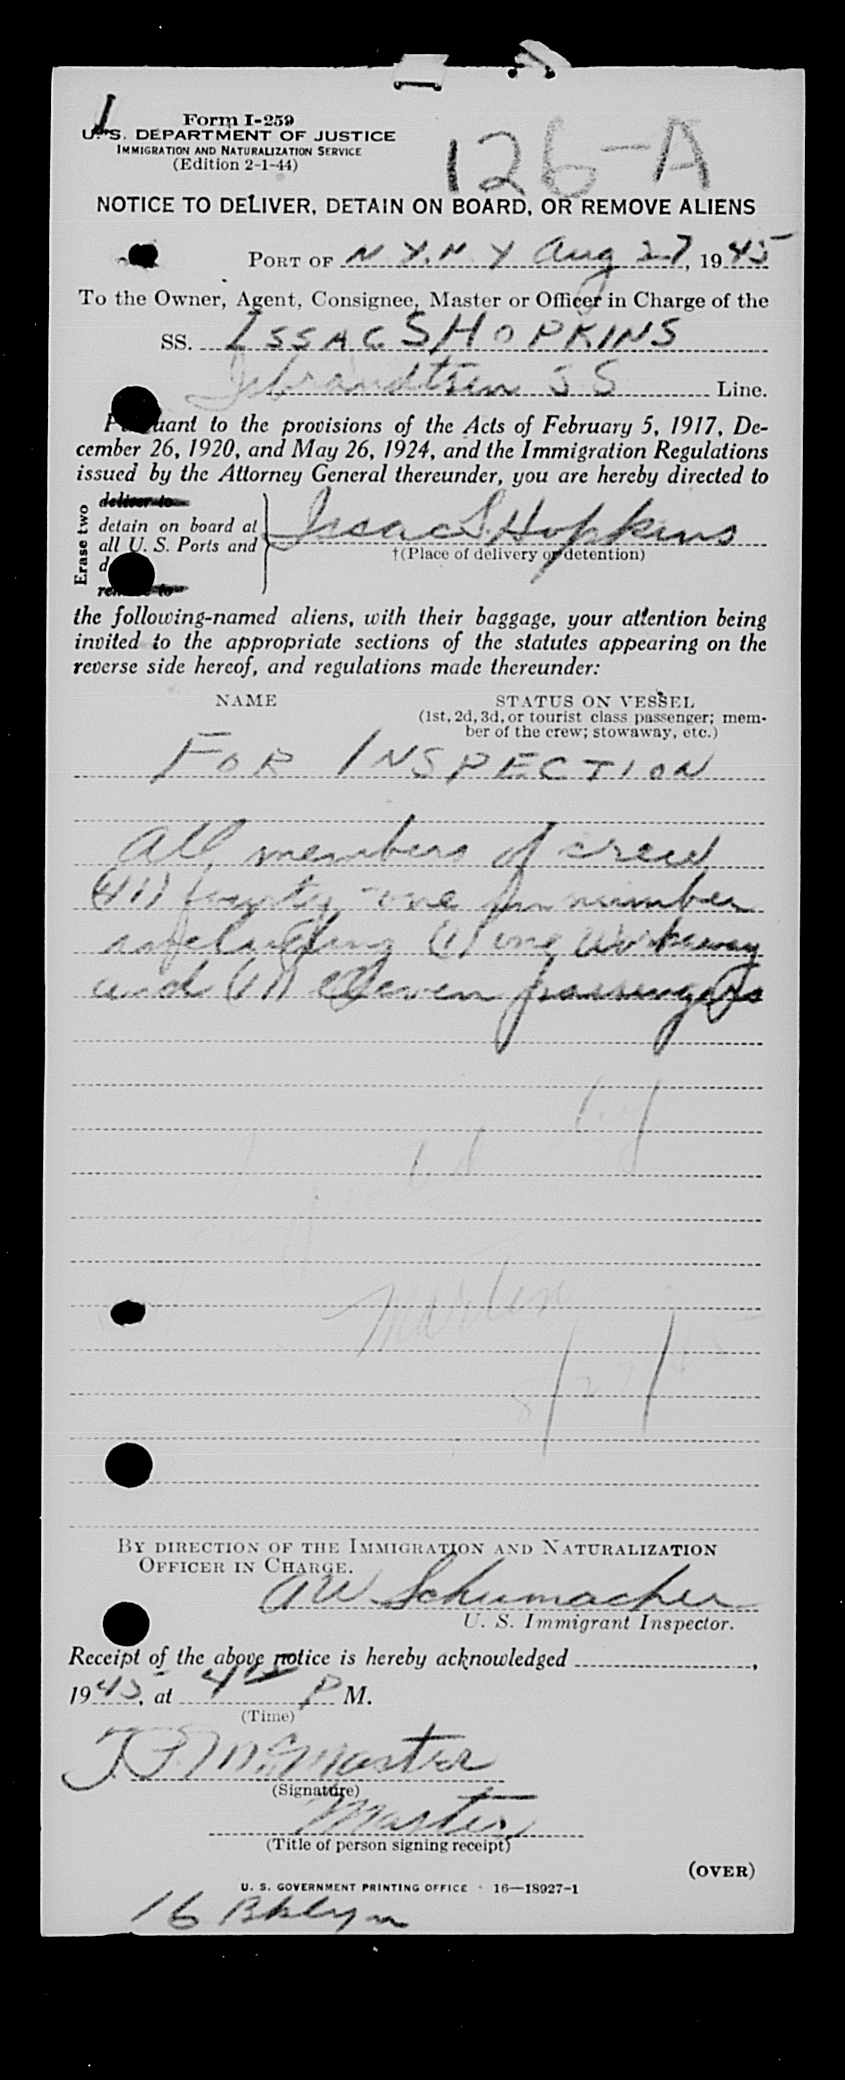 1
Form I-259
U. S. DEPARTMENT OF JUSTICE
IMMIGRATION AND NATURALIZATION SERVICE
(Edition 2-1-44)
126-A
NOTICE TO DELIVER, DETAIN ON BOARD, OR REMOVE ALIENS
PORT OF N.Y. N.Y Aug 27, 1945
To the Owner, Agent, Consignee, Master or Officer in Charge of the
SS. ISSAC S HOPKINS
Isbrandtsen S S Line.
Pursuant to the provisions of the Acts of February 5, 1917, De-
cember 26, 1920, and May 26, 1924, and the Immigration Regulations
issued by the Attorney General thereunder, you are hereby directed to
Erase two
deliver to
detain on board at
all U. S. Ports and
remove to
Issac S. Hopkins
†(Place of delivery or detention)
the following-named aliens, with their baggage, your attention being
invited to the appropriate sections of the statutes appearing on the
reverse side hereof, and regulations made thereunder:
NAME STATUS ON VESSEL
(1st, 2d, 3d, or tourist class passenger; mem-
ber of the crew; stowaway, etc.)
FOR INSPECTION
All members of crew
(41) fourty-one in number
including (1) one workaway
and (11) eleven passengers
8/27/45
BY DIRECTION OF THE IMMIGRATION AND NATURALIZATION
OFFICER IN CHARGE.
A W Schumacher
U. S. Immigrant Inspector.
Receipt of the above notice is hereby acknowledged ,
1945, at 4 P M.
(Time)
T. F. McMaster
(Signature)
Master
(Title of person signing receipt)
(OVER)
U. S. GOVERNMENT PRINTING OFFICE 16—18927-1
16 Bklyn